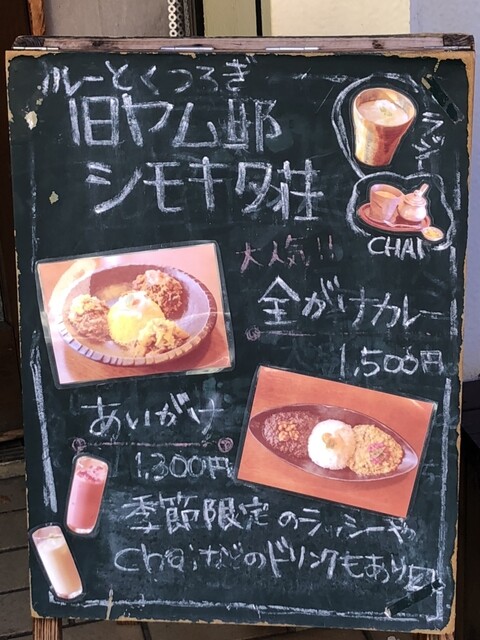 ルーとくつろぎ
旧ヤム邸
シモキタ荘
ラッシー
CHAI
大人気!!
全がけカレー
1,500円
あいがけ
1,300円
季節限定のラッシーや
Chaiなどのドリンクもあり